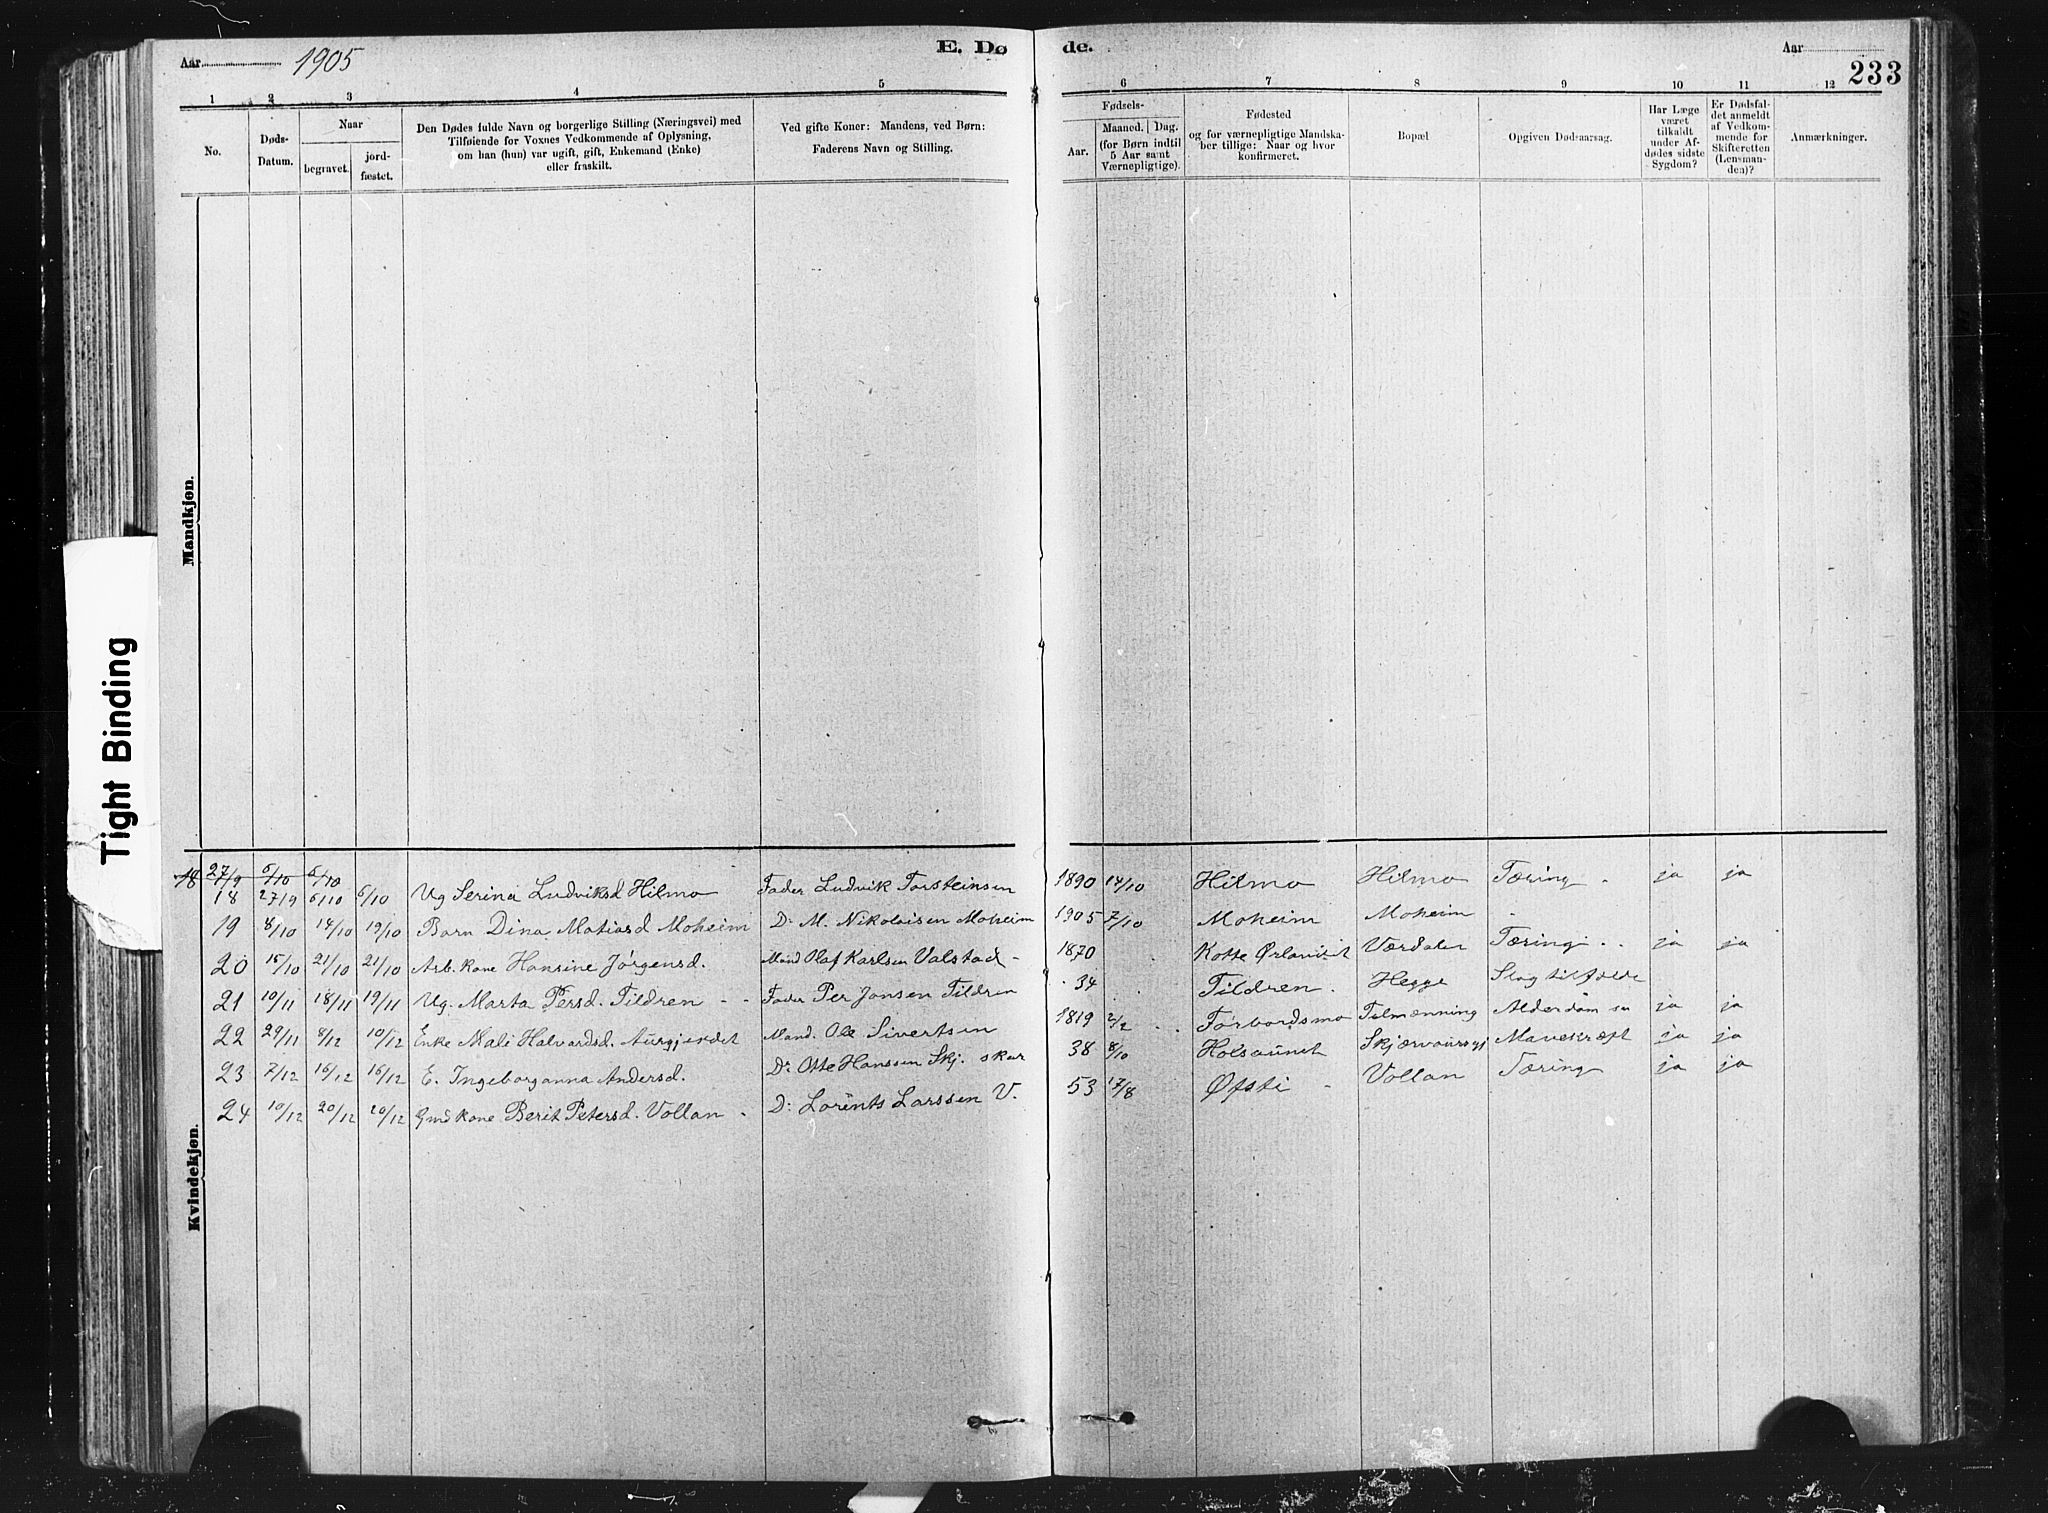 Aar 1905
E. Dø de.
Aar
233
1 2 3 4 5 6 7 8 9 10 11 12
No.
Døds-Datum.
Naar
begravet.
jord-fæstet.
Den Dødes fulde Navn og borgerlige Stilling (Næringsvei) med
Tilføiende for Voxnes Vedkommende af Oplysning,
om han (hun) var ugift, gift, Enkemand (Enke)
eller fraskilt.
Ved gifte Koner: Mandens, ved Børn:
Faderens Navn og Stilling.
Fødsels-
Aar.
Maaned. Dag.
(for Børn indtil
5 Aar samt
Værnepligtige).
Fødested
og for værnepligtige Mandska-
ber tillige: Naar og hvor
konfirmeret.
Bopæl
Opgiven Dødsaarsag.
Har Læge
været
tilkaldt
under Af-
dødes sidste
Sygdom?
Er Dødsfal-
det anmeldt
af Vedkom-
mende for
Skifteretten
(Lensman-
den)?
Anmærkninger.
Mandkjøn.
Tight Binding
Kvindekjøn.
18 27/9 6/10 6/10
18 27/9 6/10 6/10 Ug Serina Ludviksd Hilmo Fader Ludvik Torsteinsen 1890 14/10 Hilmo Hilmo Tæring ja ja
19 8/10 14/10 19/10 Barn Dina Matiasd Moheim D: M. Nikolaisen Moheim 1905 7/10 Moheim Moheim
20 15/10 21/10 21/10 Arb. kone Hansine Jørgensd. Mand Olaf Karlsen Valstad 1870 Kotte Ørlandet Værdalen Tæring ja ja
21 10/11 18/11 19/11 Ug. Marta Persd. Tildren Fader Per Jonsen Tildren 34 Tildren Hegge Slagtilfælde
22 29/11 8/12 10/12 Enke Mali Halvardsd. Aurgjerdet Mand. Ole Sivertsen 1819 2/2 Forbordsmo Tilmænning ja ja
23 7/12 16/12 16/12 E. Ingeborganna Andersd. D: Otte Hanssen Skj. skar 38 8/10 Holsaunet Mavekræft ja ja
24 10/12 20/12 20/12 Gmd kone Berit Petersd. Vollan D: Lorents Larssen V. 53 17/8 Øfsti Vollan Tæring ja ja